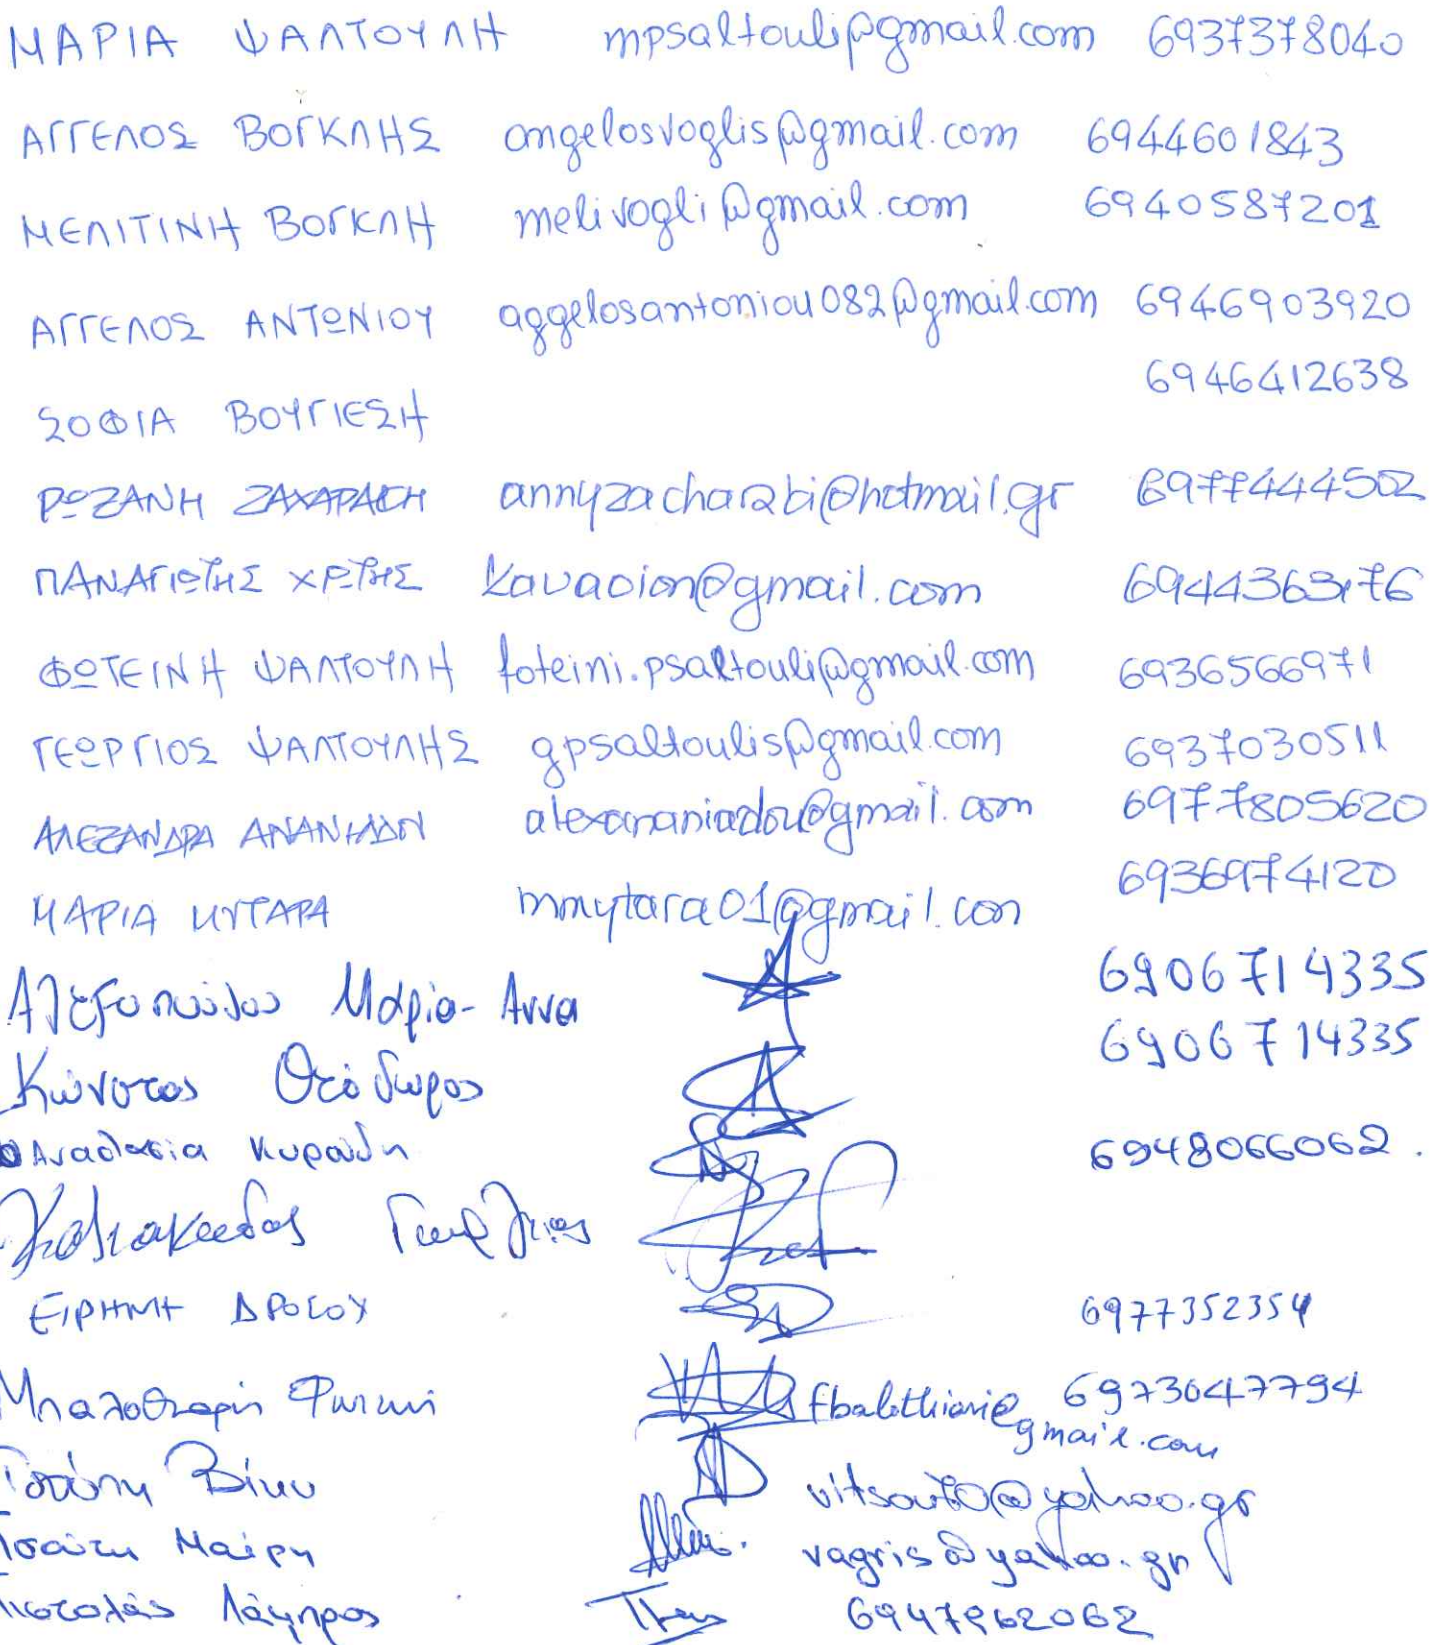 ΜΑΡΙΑ ΨΑΛΤΟΥΛΗ mpsaltouli@gmail.com 6937378040
ΑΓΓΕΛΟΣ ΒΟΓΚΛΗΣ angelosvoglis@gmail.com 6944601843
ΜΕΛΙΤΙΝΗ ΒΟΓΚΛΗ melivogli@gmail.com 6940587201
ΑΓΓΕΛΟΣ ΑΝΤΩΝΙΟΥ aggelosantoniou082@gmail.com 6946903920
ΣΟΦΙΑ ΒΟΥΓΙΕΣΗ 6946412638
ΡΩΞΑΝΗ ΖΑΧΑΡΑΚΗ 6977444502
ΠΑΝΑΓΙΩΤΗΣ ΧΡ 6944363176
ΦΩΤΕΙΝΗ ΨΑΛΤΟΥΛΗ foteini.psaltouli@gmail.com 6936566971
ΓΕΩΡΓΙΟΣ ΨΑΛΤΟΥΛΗΣ gpsaltoulis@gmail.com 6937030511
ΑΛΕΞΑΝΔΡΑ ΑΝΑΝΙΑΔΟΥ alexananiadou@gmail.com 6977805620
ΜΑΡΙΑ ΜΥΤΑΡΑ mmytara01@gmail.com 6936974120
Αλεξοπούλου Μαρία-Άννα 6906714335
Κώνστας Θεόδωρος 6906714335
Αναστασία 6948066062.
Γεώργιος
ΕΙΡΗΝΗ ΔΡΟΣΟΥ 6977352354
Φωτεινή 6973047794
gmail.com
Τσούτη Βίκυ @yahoo.gr
Τσούτη Μαίρη vagris@yahoo.gr
Πιστολάς Λάμπρος